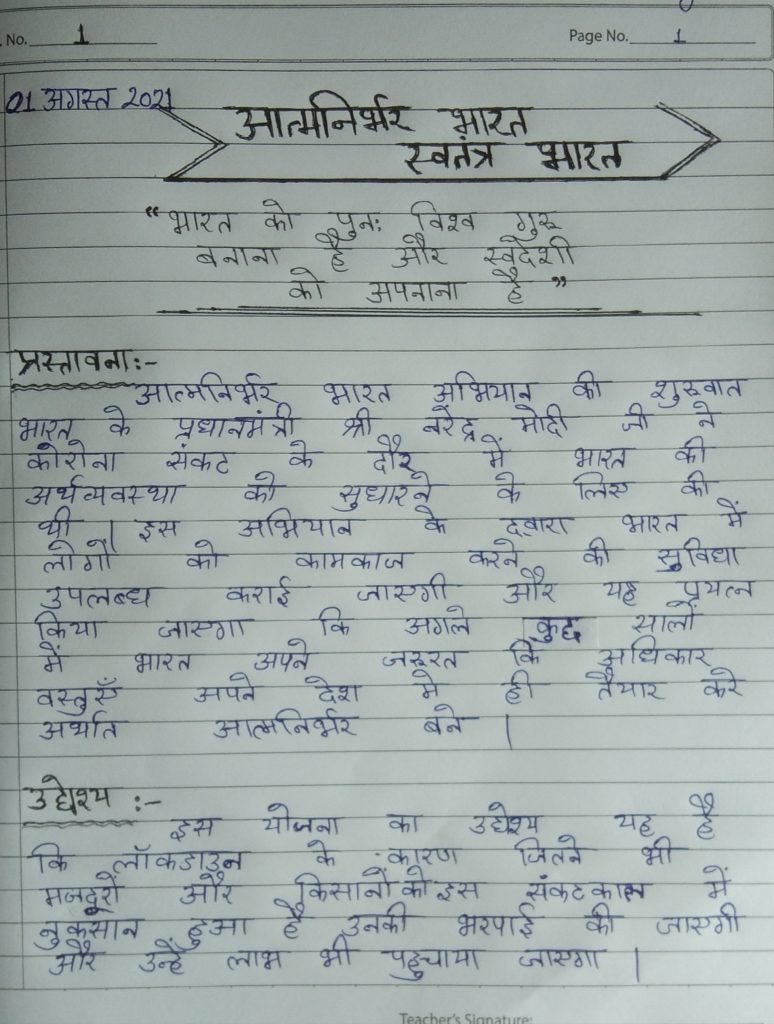 No. 1
Page No. 1
01 अगस्त 2021
आत्मनिर्भर भारत
स्वतंत्र भारत
“भारत को पुनः विश्व गुरू
बनाना है और स्वदेशी
को अपनाना है”
प्रस्तावना:-
आत्मनिर्भर भारत अभियान की शुरुवात
भारत के प्रधानमंत्री श्री नरेंद्र मोदी जी ने
कोरोना संकट के दौर में भारत की
अर्थव्यवस्था को सुधारने के लिए की
थी | इस अभियान के द्वारा भारत में
लोगों को कामकाज करने की सुविधा
उपलब्ध कराई जाएगी और यह प्रयत्न
किया जाएगा कि अगले कुछ सालों
में भारत अपने जरूरत कि अधिकार
वस्तुएँ अपने देश मे ही तैयार करे
अर्थात आत्मनिर्भर बने |
उद्देश्य :-
इस योजना का उद्देश्य यह है
कि लॉकडाउन के कारण जितने भी
मजदूरों और किसानों को इस संकटकाल में
नुकसान हुआ है उनकी भरपाई की जाएगी
और उन्हें लाभ भी पहुचाया जाएगा |
Teacher's Signature: